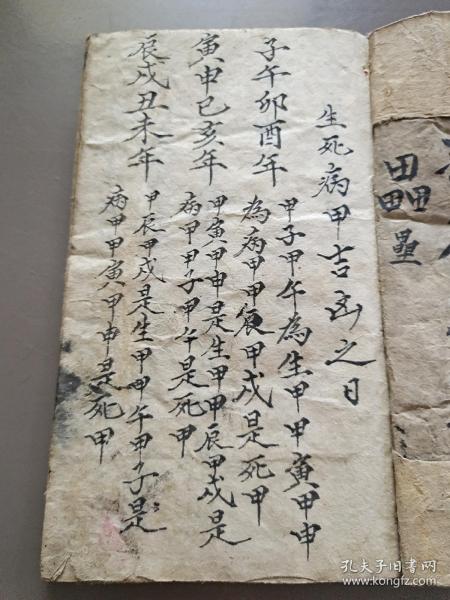 生死病甲吉凶之日
子午卯酉年
甲子甲午為生甲甲寅甲申
為病甲甲辰甲戌是死甲
寅申巳亥年
甲寅甲申是生甲甲辰甲戌是
病甲甲子甲午是死甲
辰戌丑未年
甲辰甲戌是生甲甲午甲子是
病甲甲寅甲申是死甲
畾
孔夫子旧书网
www.kongfz.com